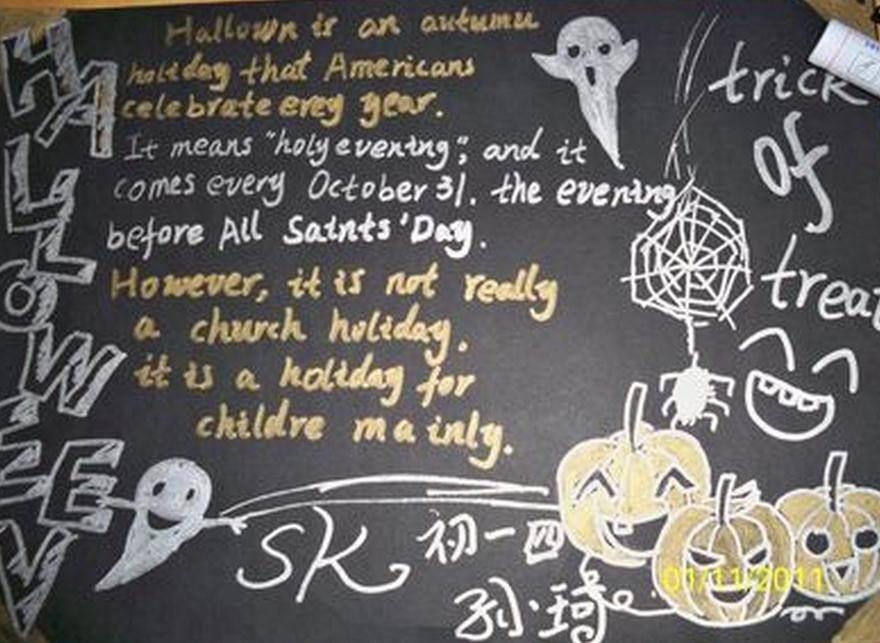 Hallown is an autumu
holiday that Americans
celebrate erey year.
It means "holy evening", and it
comes every October 31. the evening
before All Saints' Day.
However, it is not really
a church holiday.
it is a holiday for
childre mainly.
HALLOWEEN
trick
of
treat
SK 初一四
孙琦
01/11/2011